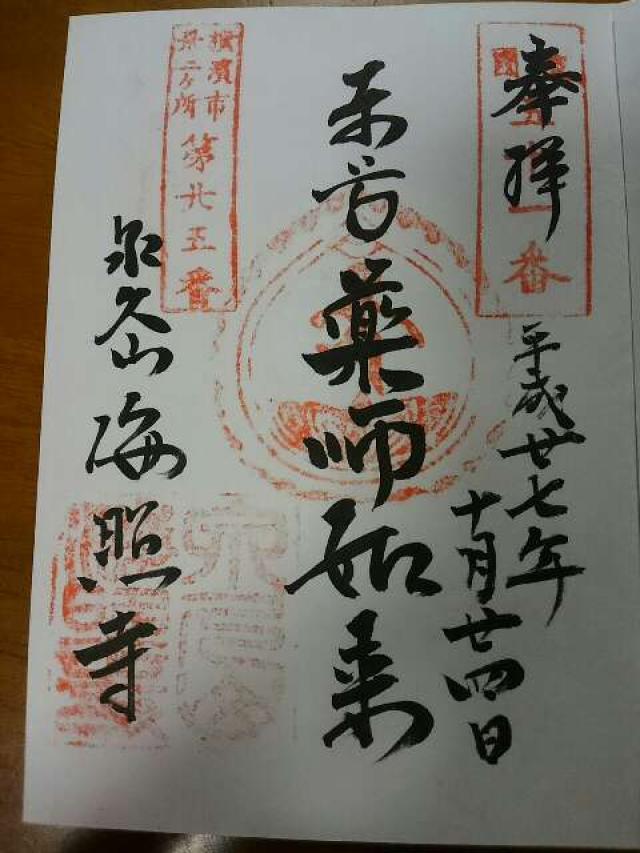 奉拝
平成廿七年
十月廿四日
東方
薬師如来
横濱市
卅二ヶ所
第廿五番
永久山海照寺